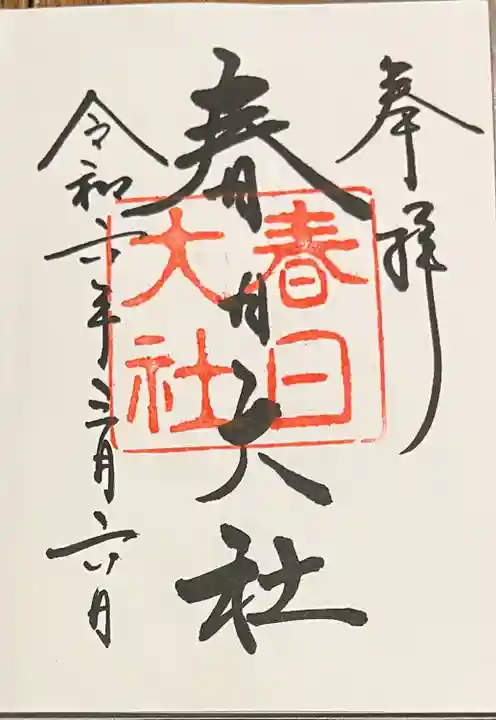 奉拝
春日大社
春日
大社
令和六年三月六日